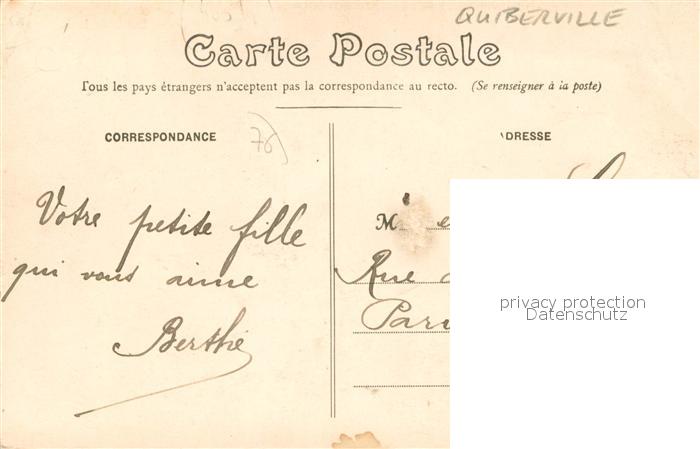 QUIBERVILLE
Carte Postale
Tous les pays étrangers n'acceptent pas la correspondance au recto. (Se renseigner à la poste)
CORRESPONDANCE
76
DRESSE
Votre petite fille
qui vous aime
Berthe
M
Rue
privacy protection
Datenschutz